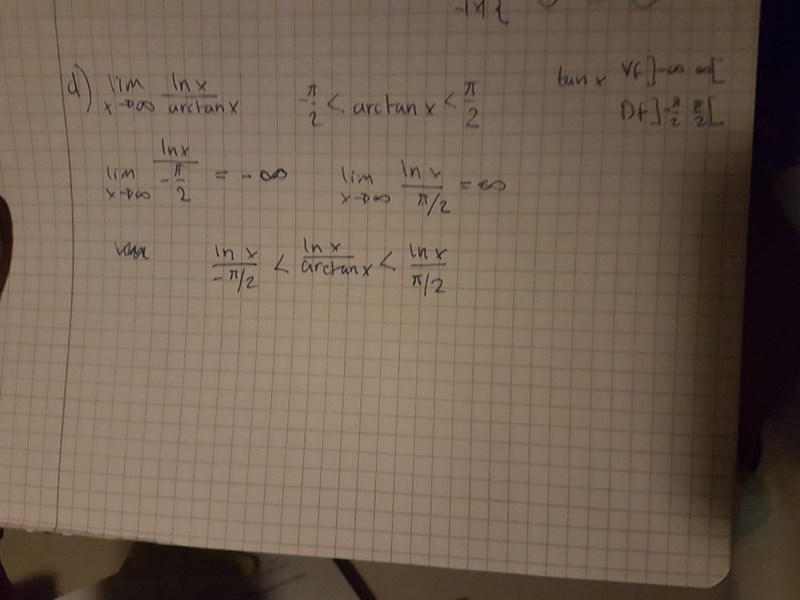 -1x1 {
d) lim x→∞ ln x / arctan x   -π/2 < arctan x < π/2   tan x Vf ]-∞ ∞[
Df ]-π/2 π/2[
lim x→∞ ln x / -π/2 = -∞   lim x→∞ ln x / π/2 = ∞
ln x / -π/2 < ln x / arctan x < ln x / π/2